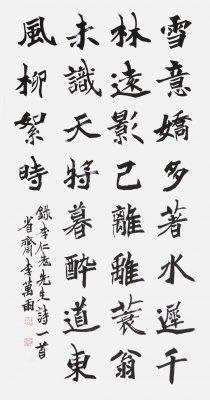 雪意嬌多著水遲千
林遠影已離離蓑翁
未識天將暮醉道東
風柳絮時
錄李仁老先生詩一首
省齋李萬雨